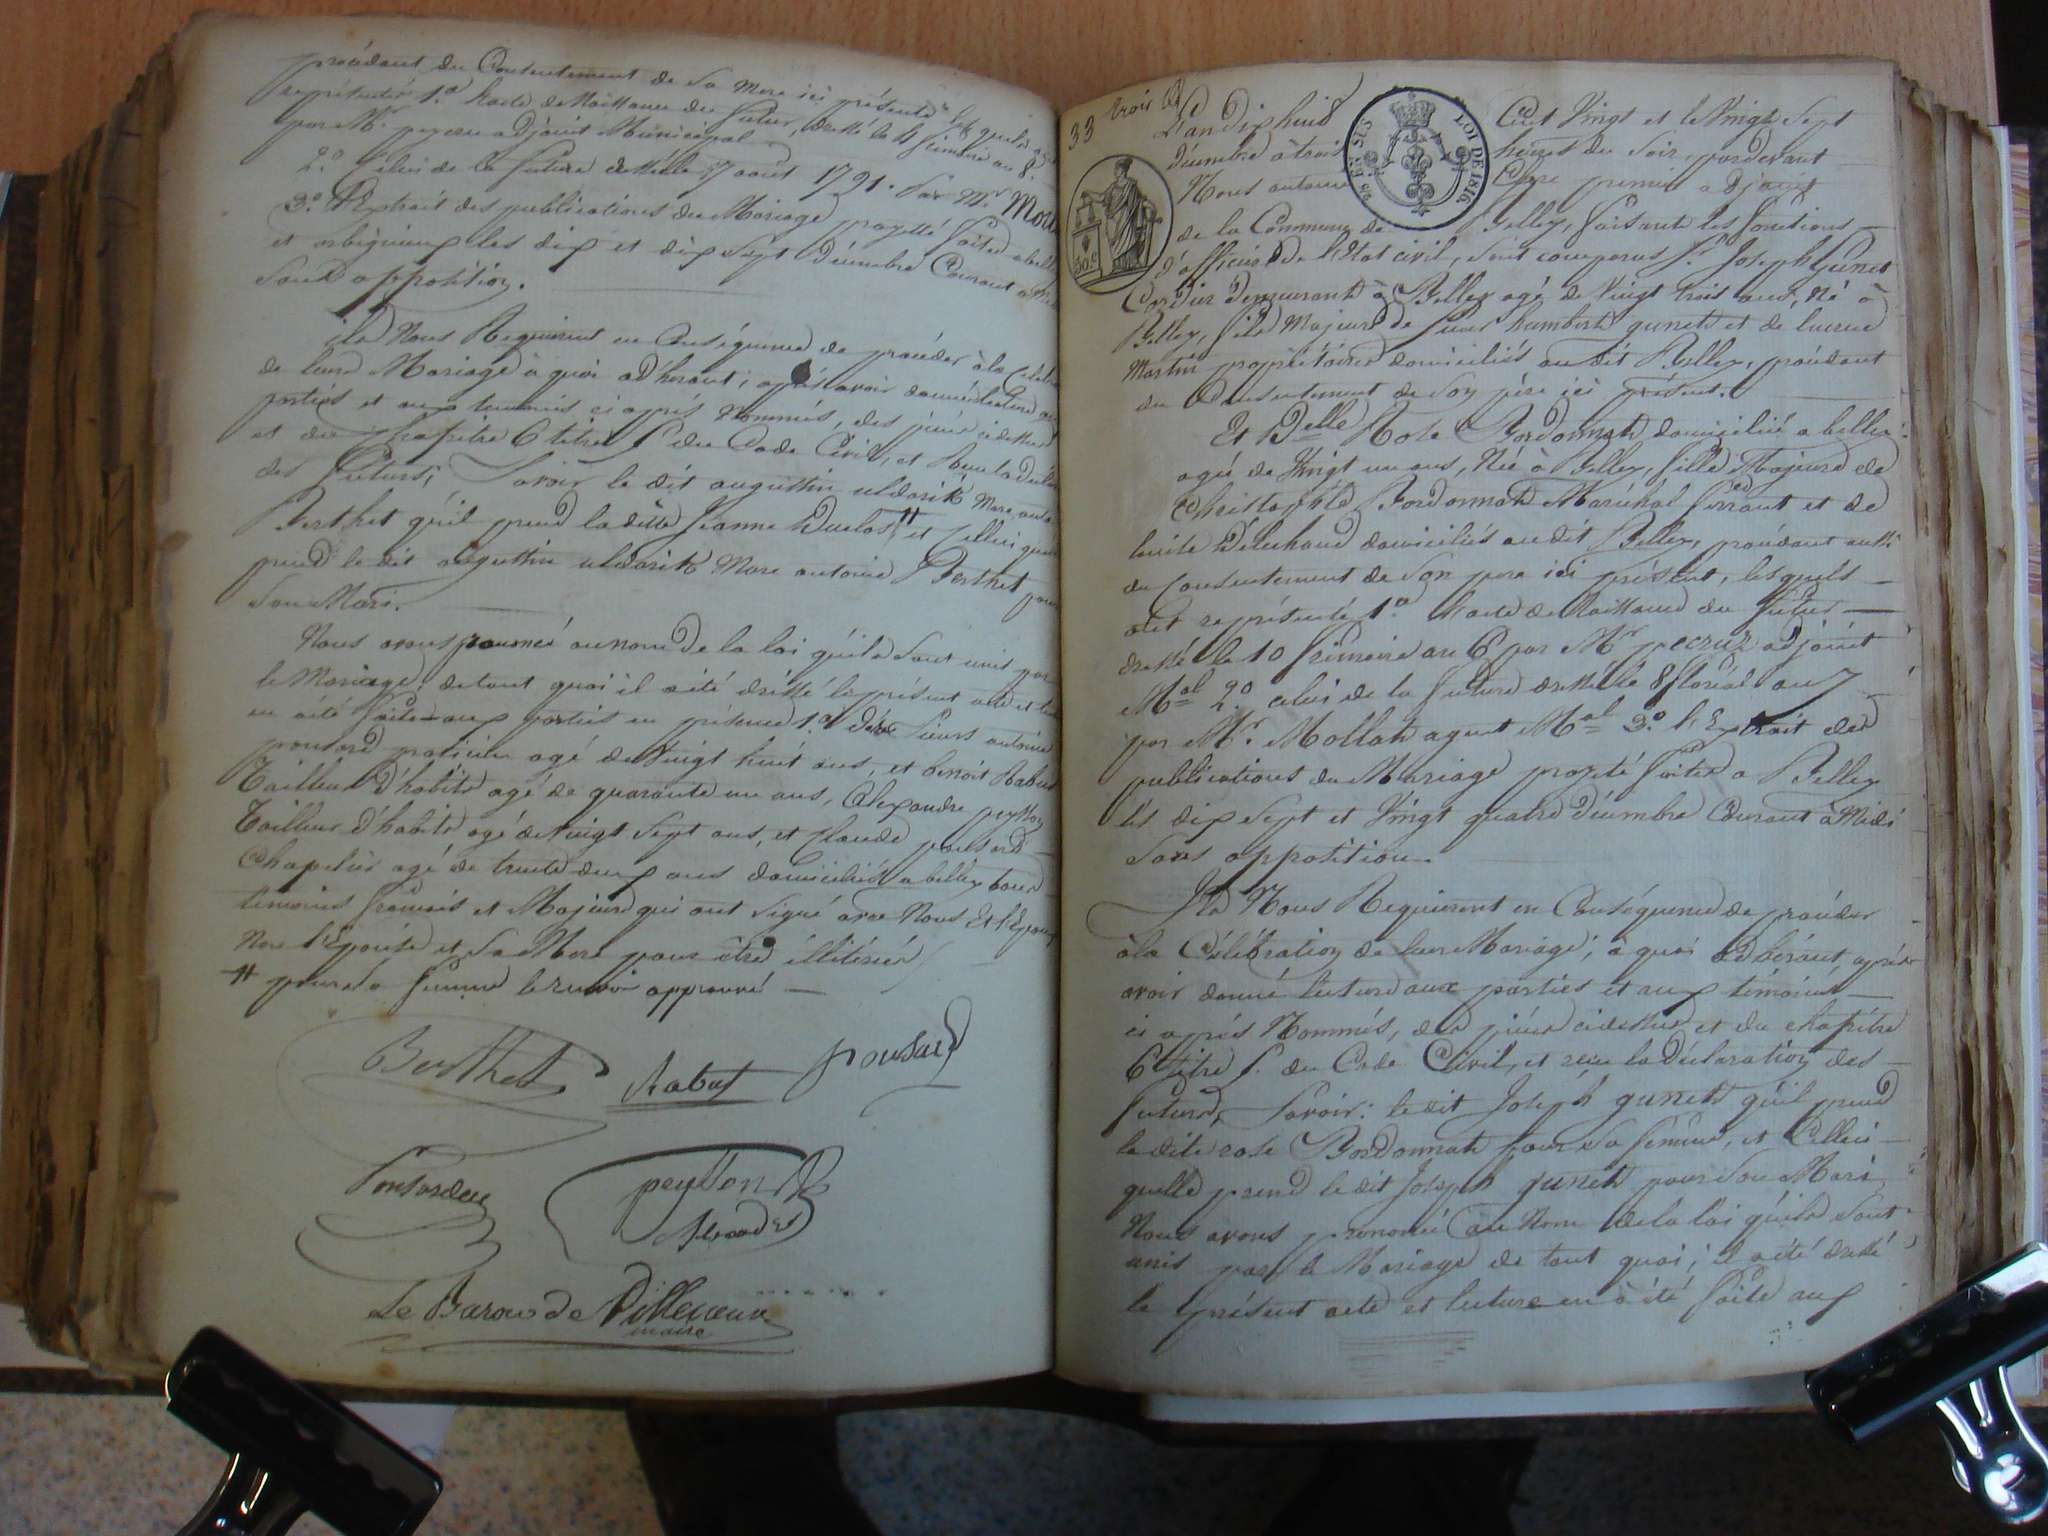 procédant du Consentement de Sa Mere ici présente lesquels
représenté 1.° l'acte de Naissance du futur, dressé le 4 frimaire an 8.
par Mr. peyson adjoint Municipal
2.° Celui de la future dressé le 7 aout 1791. Par Mr
3.° L'Extrait des publications du Mariage projetté faites a belley
et les dix et dix Sept Décembre Courant a Midi
Sans opposition.
ils Nous Requierent en Conséquence de procéder à la
de leur Mariage à quoi adhérant, après avoir donné lecture aux
parties et aux temoins ci après Nommés, des pièces ci dessus
et du chapitre 6 titre 5 du Code Civil, et Reçu la
des futurs, Savoir le dit augustin uldarik Marc antoine
Berthet qu'il prend la dite Jeanne Duclos # et Celle ci
prend le dit augustin uldarik Marc antoine Berthet pour
Son Mari.
Nous avons prononcé au nom de la loi qu'ils Sont unis par
le Mariage; de tout quoi il a été dressé le présent acte et
en a été faite aux parties en présence 1.° des Sieurs antoine
ponsard patissier agé de Vingt huit ans, et benoit Rabut
Tailleur d'habits agé de quarante un ans, Alexandre peysson
Tailleur d'habits agé de Vingt Sept ans, et Claude ponsard
Chapelier agé de trente deux ans domiciliés a belley tous
temoins français et Majeurs qui ont Signé avec Nous Et l'Epoux
Non l'Epouse et Sa Mere pour être illitérés
# pour Sa femme le renvoi approuvé
Berthet Rabut ponsard
Ponsard peysson
Alexandre
Le Baron de Villeneuve
maire
33 trois
L'an dix huit Cent Vingt et le Vingt Sept
Décembre à trois heures du Soir, par devant
Nous antoine premier adjoint
de la Commune de Belley, faisant les fonctions
d'officier de l'Etat civil, Sont comparus Sr. Joseph Gunet
Cordier Demeurant à Belley agé de Vingt trois ans, Né à
Belley, fils Majeur de Sieur humbert gunet et de
Martin propriétaires domiciliés au dit Belley, procédant
du Consentement de Son père ici présent.
Et Delle Rose Bordonnat domiciliée a belley
agée de Vingt un ans, Née à Belley, fille Majeure de
Christophle Bordonnat Maréchal ferrant et de
domiciliés au dit Belley, procédant aussi
du Consentement de Son pere ici présent, lesquels
ont représenté 1.° l'acte de Naissance du futur
dressé le 10 frimaire an 6 par Mr adjoint
Mal 2.° celui de la future dressé le 8 floréal an 7
par Mr. Mollat agent Mal 3.° l'Extrait des
publications du Mariage projeté faites a Belley
les dix Sept et Vingt quatre Décembre Courant à Midi
Sans opposition.
Ils Nous Requierent en Conséquence de procéder
à la Célébration de leur Mariage; à quoi adhérant, après
avoir donné lecture aux parties et aux témoins
ci après Nommés, des pièces ci dessus et du chapitre
6 titre 5. du Code Civil, et reçu la Déclaration des
futurs, Savoir: le dit Joseph gunet qu'il prend
la dite rose Bordonnat pour Sa femme, et Celle ci
quelle prend le dit Joseph gunet pour Son Mari
Nous avons prononcé au Nom de la loi qu'ils Sont
unis par le Mariage de tout quoi; il a été dressé
le présent acte et lecture en à été faite aux
25 EN SUS
LOI DE 1816
50.c